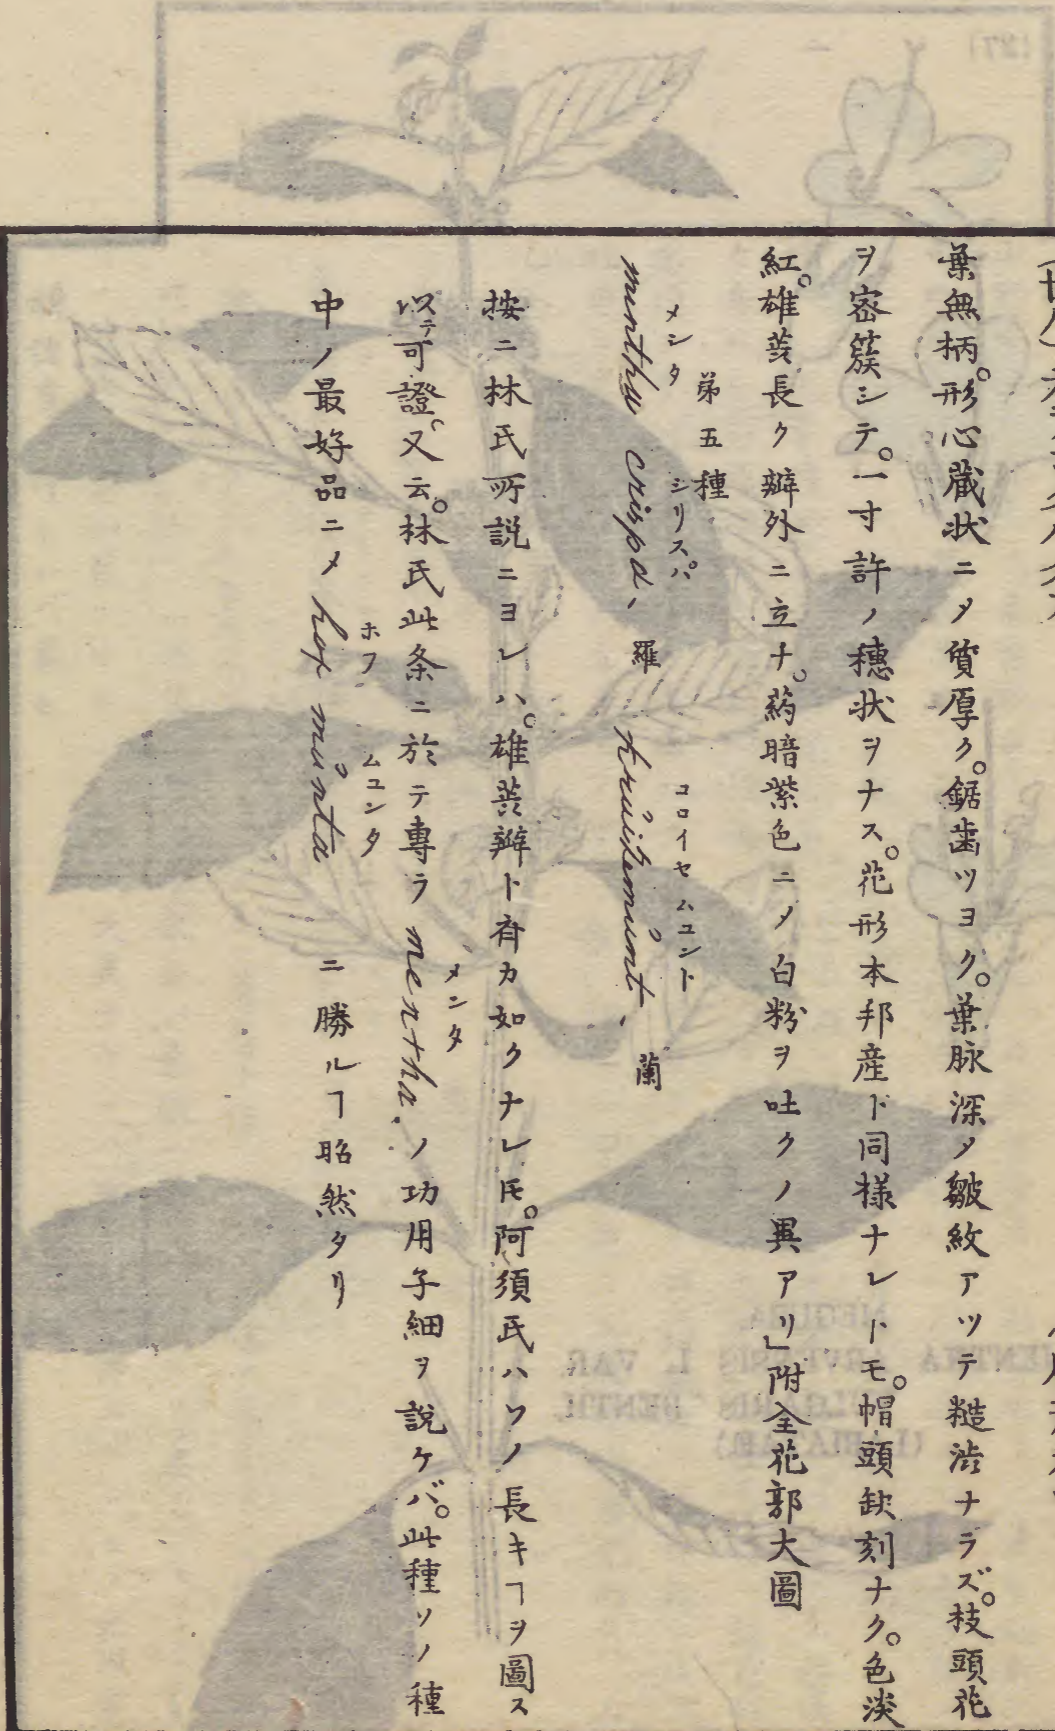 葉無柄。形心蔵状ニ〆質厚ク。鋸歯ツヨク。葉脉深〆皺紋アツテ糙渋ナラズ。枝頭花
ヲ密簇シテ。一寸許ノ穂状ヲナス。花形本邦産ト同様ナレドモ。帽頭缺刻ナク。色淡
紅。雄蕋長ク辧外ニ立ナ。葯暗紫色ニ〆白粉ヲ吐クノ異アリ」附全花郭大圖
第五種
メンタ シリスパ コロイセムユント
mentha crispa、羅 kruisemunt、蘭
按ニ林氏所説ニヨレハ。雄蕋辧ト斉カ如クナレ𪜈。阿須氏ハソノ長キヿヲ圖ス
以テ可證。又云。林氏此条ニ於テ專ラ mentha. ノ功用子細ヲ説ケバ。此種ソノ種
メンタ
中ノ最好品ニ〆 hof munta ニ勝ルヿ昭然タリ
ホフ ムユンタ